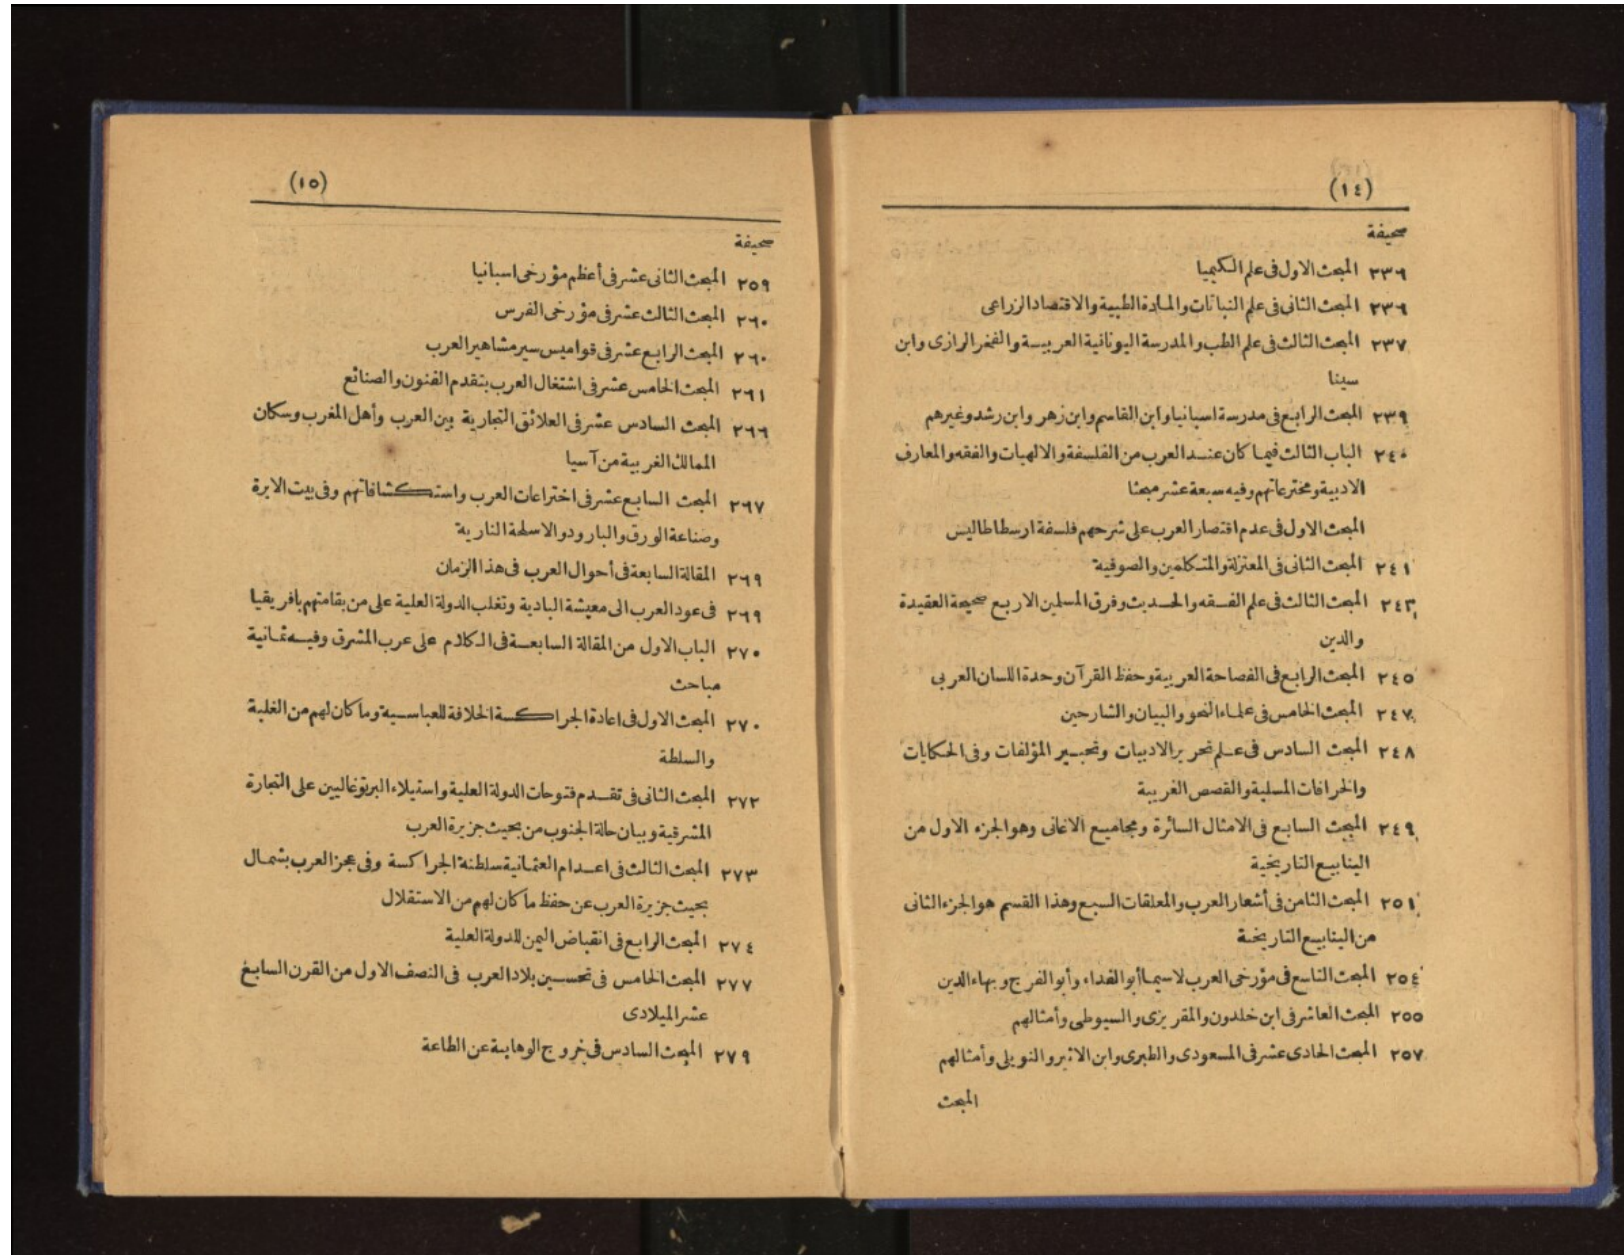 (١٤)
صحيفة
٢٣٦ المبحث الاول فى علم الكيميا
٢٣٦ المبحث الثانى فى علم النباتات والمادة الطبية والاقتصاد الزراعى
٢٣٧ المبحث الثالث فى علم الطب والمدرسة اليونانية العربية والفخر الرازى وابن
سينا
٢٣٩ المبحث الرابع فى مدرسة اسبانيا وابن القاسم وابن زهر وابن رشد وغيرهم
٢٤٠ الباب الثالث فيما كان عند العرب من الفلسفة والالهيات والفقه والمعارف
الادبية ومخترعاتهم وفيه سبعة عشر مبحثا
المبحث الاول فى عدم اقتصار العرب على شرحهم فلسفة ارسطاطاليس
٢٤١ المبحث الثانى فى المعتزلة والمتكلمين والصوفية
٢٤٣ المبحث الثالث فى علم الفقه والحديث وفرق المسلمين الاربع صحيحة العقيدة
والدين
٢٤٥ المبحث الرابع فى الفصاحة العربية وحفظ القرآن وحدة اللسان العربى
٢٤٧ المبحث الخامس فى علماء النحو والبيان والشارحين
٢٤٨ المبحث السادس فى علم تحرير الادبيات وتحبير المؤلفات وفى الحكايات
والخرافات المسلية والقصص الغريبة
٢٤٩ المبحث السابع فى الامثال السائرة ومجاميع الاغانى وهو الجزء الاول من
الينابيع التاريخية
٢٥١ المبحث الثامن فى أشعار العرب والمعلقات السبع وهذا القسم هو الجزء الثانى
من الينابيع التاريخية
٢٥٤ المبحث التاسع فى مؤرخى العرب لاسيما أبو الفداء وأبو الفرج وبهاء الدين
٢٥٥ المبحث العاشر فى ابن خلدون والمقريزى والسيوطى وأمثالهم
٢٥٧ المبحث الحادى عشر فى المسعودى والطبرى وابن الاثير والنويلى وأمثالهم
المبحث
(١٥)
صحيفة
٢٥٩ المبحث الثانى عشر فى أعظم مؤرخى اسبانيا
٢٦٠ المبحث الثالث عشر فى مؤرخى الفرس
٢٦٠ المبحث الرابع عشر فى قواميس سير مشاهير العرب
٢٦١ المبحث الخامس عشر فى اشتغال العرب بتقدم الفنون والصنائع
٢٦٦ المبحث السادس عشر فى العلائق التجارية بين العرب وأهل المغرب وسكان
الممالك الغربية من آسيا
٢٦٧ المبحث السابع عشر فى اختراعات العرب واستكشافاتهم وفى بيت الابرة
وصناعة الورق والبارود والاسلحة النارية
٢٦٩ المقالة السابعة فى أحوال العرب فى هذا الزمان
٢٦٩ فى عود العرب الى معيشة البادية وتغلب الدولة العلية على من بقامتهم بافريقيا
٢٧٠ الباب الاول من المقالة السابعة فى الكلام على عرب المشرق وفيه ثمانية
مباحث
٢٧٠ المبحث الاول فى اعادة الجراكسة الخلافة للعباسية وما كان لهم من الغلبة
والسلطة
٢٧٢ المبحث الثانى فى تقدم فتوحات الدولة العلية واستيلاء البرتوغاليين على التجارة
المشرقية وبيان حالة الجنوب من بحيث جزيرة العرب
٢٧٣ المبحث الثالث فى اعدام العثمانية سلطنة الجراكسة وفى عجز العرب بشمال
بحيث جزيرة العرب عن حفظ ما كان لهم من الاستقلال
٢٧٤ المبحث الرابع فى انقباض اليمن للدولة العلية
٢٧٧ المبحث الخامس فى تحسين بلاد العرب فى النصف الاول من القرن السابغ
عشر الميلادى
٢٧٩ المبحث السادس فى خروج الوهابية عن الطاعة